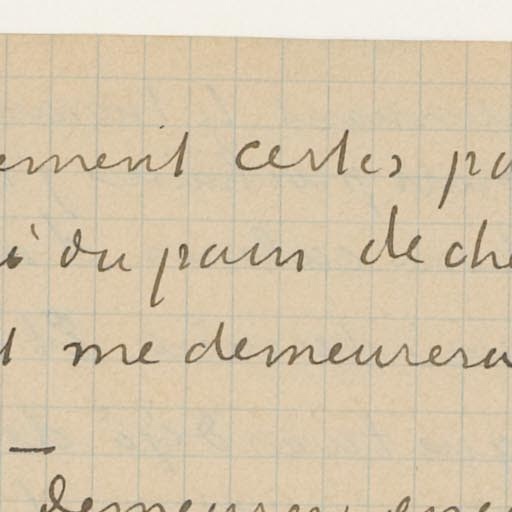 ement certes pa
i du pain de che
t me demeurera
—
demeurer enco